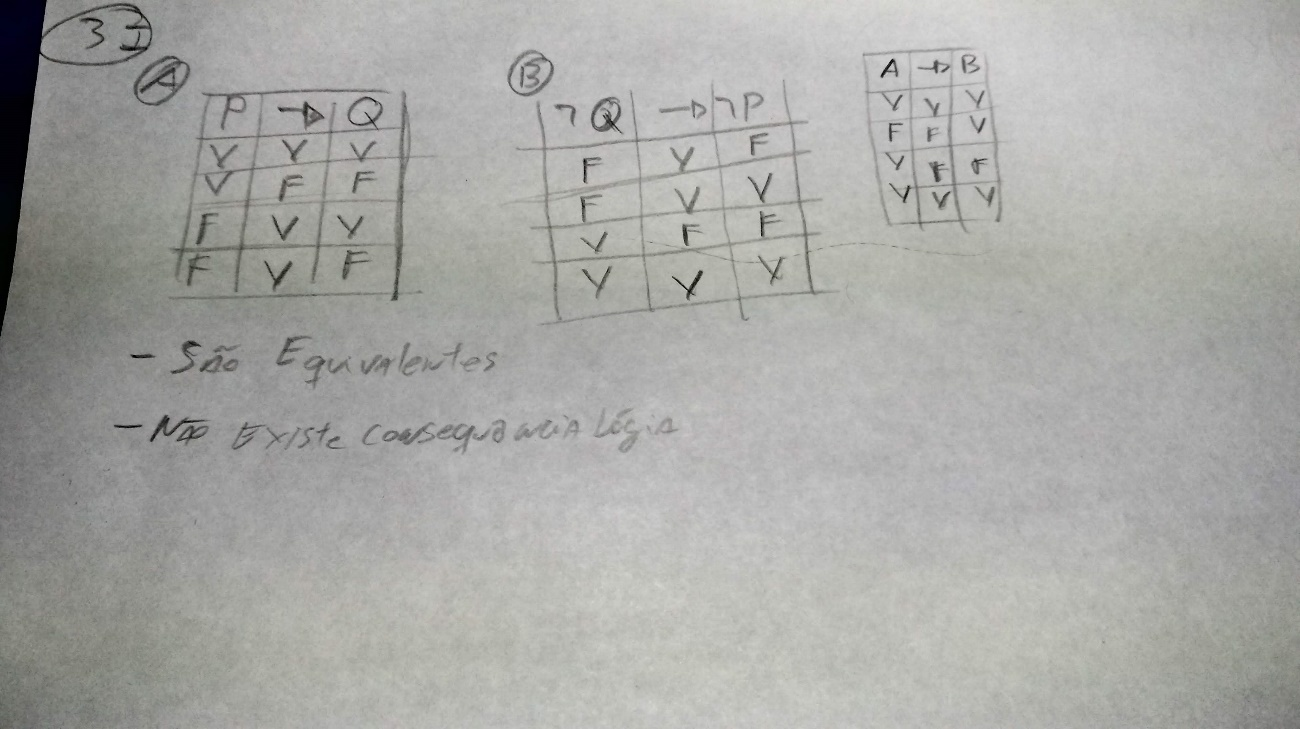 3 I
A
P → Q
V V V
V F F
F V V
F V F
B
¬Q → ¬P
F V F
F V V
V F F
V V V
A → B
V V V
F F V
V F F
V V V
- São Equivalentes
- Não Existe consequência Lógia